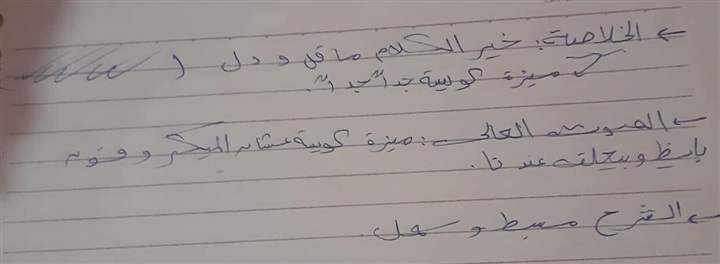 ← الخلاصة: خير الكلام ما قل و دل (
ميزة كويسة جداً جداً.
← الصوت العالى: ميزة كويسة عشان الميكروفون
بايظ وبيعلق عندنا.
← الشرح مبسط و سهل.